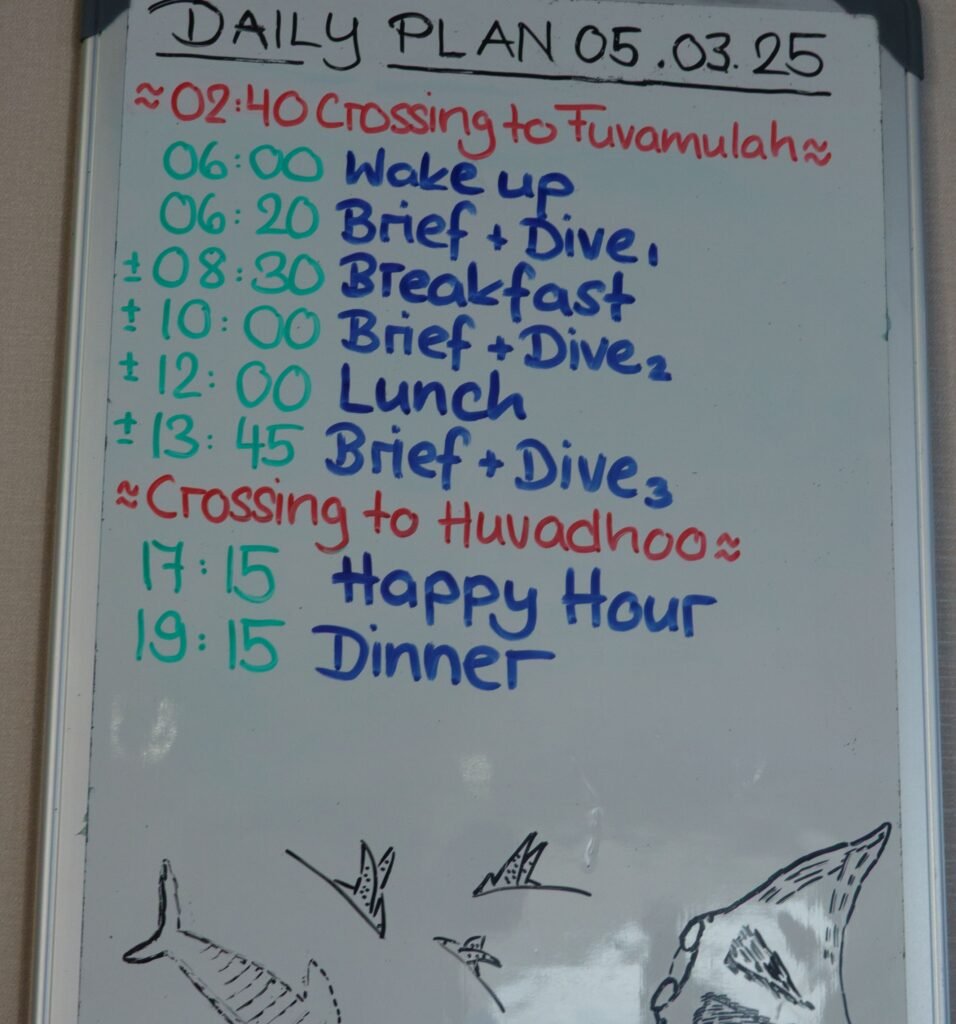 DAILY PLAN 05.03.25
≈02:40 Crossing to Fuvamulah≈
06:00 Wake up
06:20 Brief + Dive₁
±08:30 Breakfast
±10:00 Brief + Dive₂
±12:00 Lunch
±13:45 Brief + Dive₃
≈Crossing to Huvadhoo≈
17:15 Happy Hour
19:15 Dinner